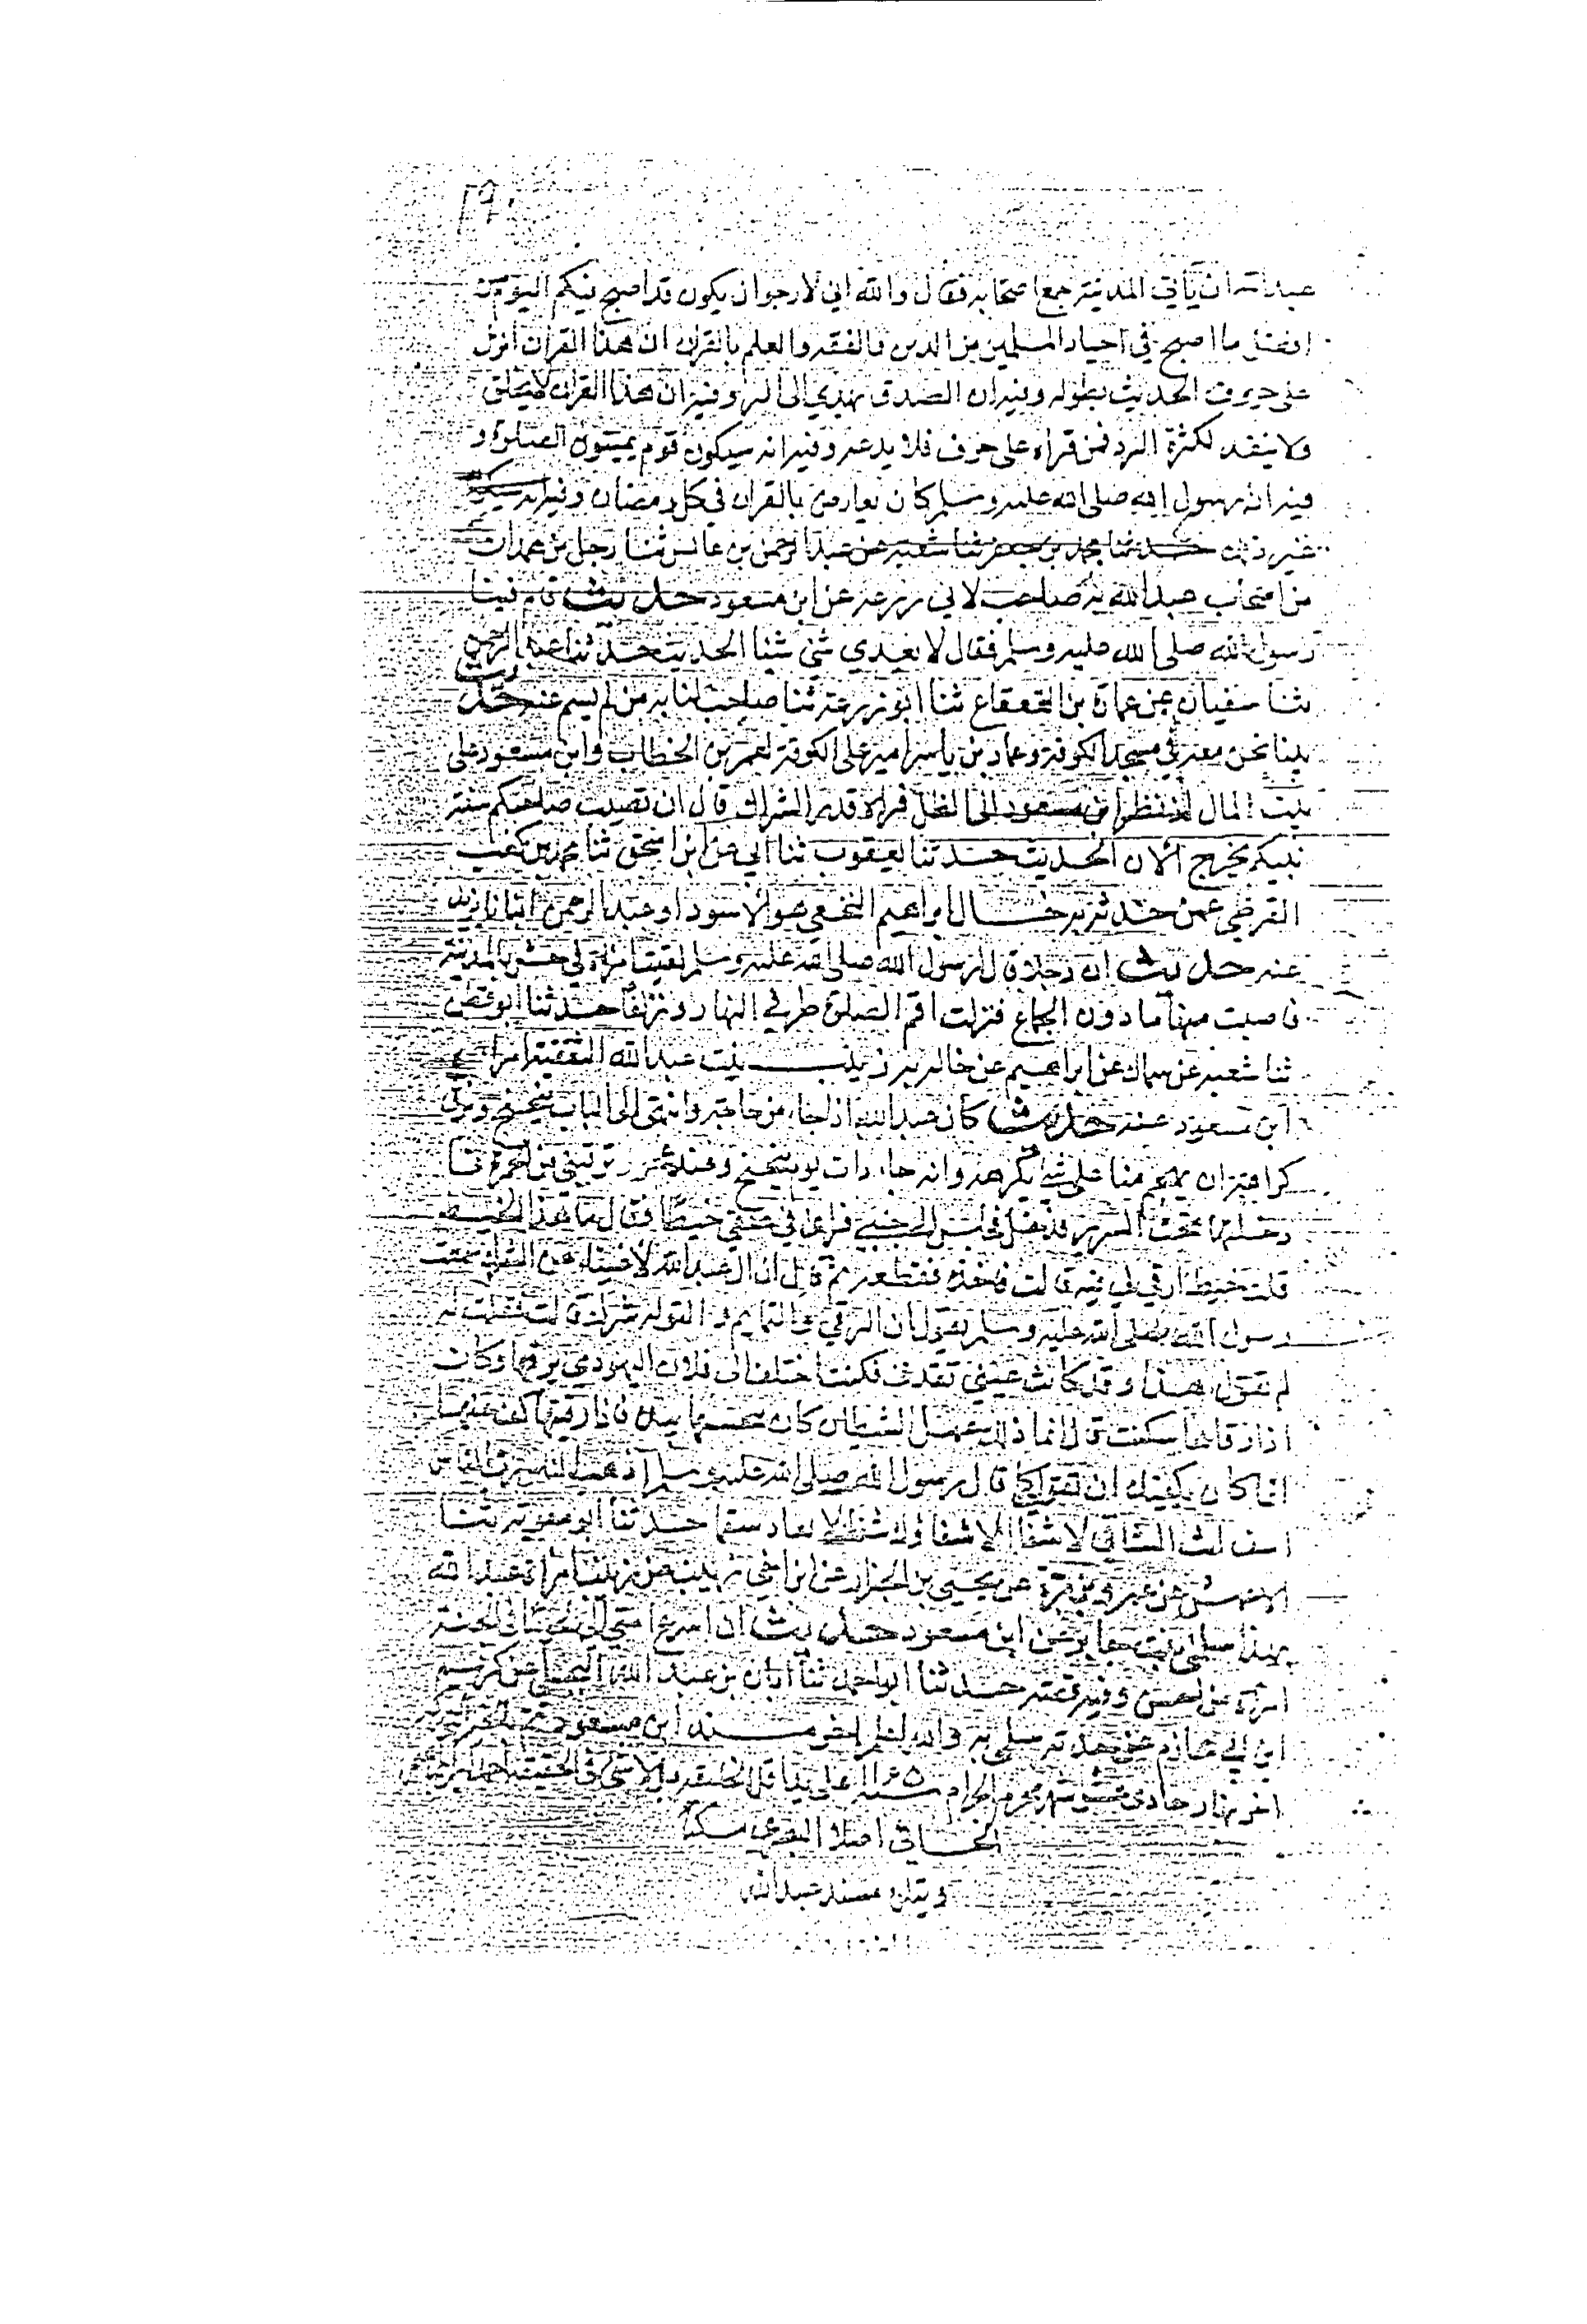 عبد الله ان يأتي المدينة جمع اصحابه فقال والله اني لارجوا ان يكون قد اصبح فيكم اليوم من
افضل ما اصبح في اجناد المسلمين من الدين والفقه والعلم بالقران ان هذا القران انزل
على حروف الحديث بطوله وفيه ان الصدق يهدي الى البر وفيه ان هذا القران لا يختلق
ولا ينفد لكثرة الرد فمن قراه على حرف فلا يدعه وفيه انه سيكون قوم يميتون الصلوة و
فيه ان رسول الله صلى الله عليه وسلم كان يعارض بالقران في كل رمضان وفيه
غير ذلك حدثنا محمد بن جعفر ثنا شعبة عن عبد الرحمن بن عابس ثنا رجل من همدان
من اصحاب عبد الله به صاحب لابي زرعة عن ابن مسعود حديث قام فينا
رسول الله صلى الله عليه وسلم فقال لا يعدي شئ شيئا الحديث حدثنا عبد الرحمن
ثنا سفيان عن عمارة بن القعقاع ثنا ابو زرعة ثنا صاحب لنا به من لم يسم عنه حديث
بينا نحن معه في مسجد الكوفة وعمار بن ياسر امير على الكوفة لعمر بن الخطاب وابن مسعود على
بيت المال اذ نظر ابن مسعود الى الظل فراه قدر الشراك قال ان تصيب صاحبكم سنة
نبيكم يخرج الان الحديث حدثنا يعقوب ثنا ابي عن ابن اسحق ثنا محمد بن كعب
القرظي عمن حدثه به خال ابراهيم النخعي هو الاسود او عبد الرحمن ابنا يزيد
عنه حديث ان رجلا قال لرسول الله صلى الله عليه وسلم لقيت امراة في حش بالمدينة
فاصبت منها ما دون الجماع فنزلت اقم الصلوة طرفي النهار وزلفا حدثنا ابو قطن
ثنا شعبة عن سماك عن ابراهيم عن خاله به زينب بنت عبد الله الثقفية امراة
ابن مسعود عنه حديث كان عبد الله اذا جاء من حاجة وانتهى الى الباب تنحنح وبزق
كراهة ان يهجم منا على شئ يكرهه وانه جاء ذات يوم فتنحنح وعندي عجوز ترقيني من الحمرة
فادخلتها تحت السرير فدخل فجلس الى جنبي فراى في عنقي خيطا فقال ما هذا الخيط
قلت خيط ارقي لي فيه قالت فاخذه فقطعه ثم قال ان ال عبد الله لاغنياء عن الشرك سمعت
رسول الله صلى الله عليه وسلم يقول ان الرقي والتمايم والتوله شرك قالت فقلت له
لم تقول هذا وقد كانت عيني تقذف فكنت اختلف الى فلان اليهودي يرقيها وكان
اذا رقاها سكنت قال انما ذلك عمل الشيطان كان ينخسها بيده فاذا رقيتها كف عنها
انما كان يكفيك ان تقولي كما قال رسول الله صلى الله عليه وسلم اذهب الباس رب الناس
اشف انت الشافي لا شفا الا شفاؤك شفا لا يغادر سقما حدثنا ابو معوية ثنا
الاعمش عن عمرو بن مرة عن يحيى بن الجزار عن ابن اخي زينب عن زينب امراة عبد الله
بهذا سلمى بنت جابر عن ابن مسعود حديث ان اسرع امتي بي لحوقا في الجنة
امراة من احمس وفيه قصة حدثنا ابو احمد ثنا ابان بن عبد الله البجلي عن كريم
ابن ابي حازم عن جدته سلمى به والله اعلم اخر مسند ابن مسعود
اخر نهار حادي شهر محرم الحرام سنة ١١٤٥ على يد
اصلا البصري مسكنا
ويتلوه مسند عبد الله